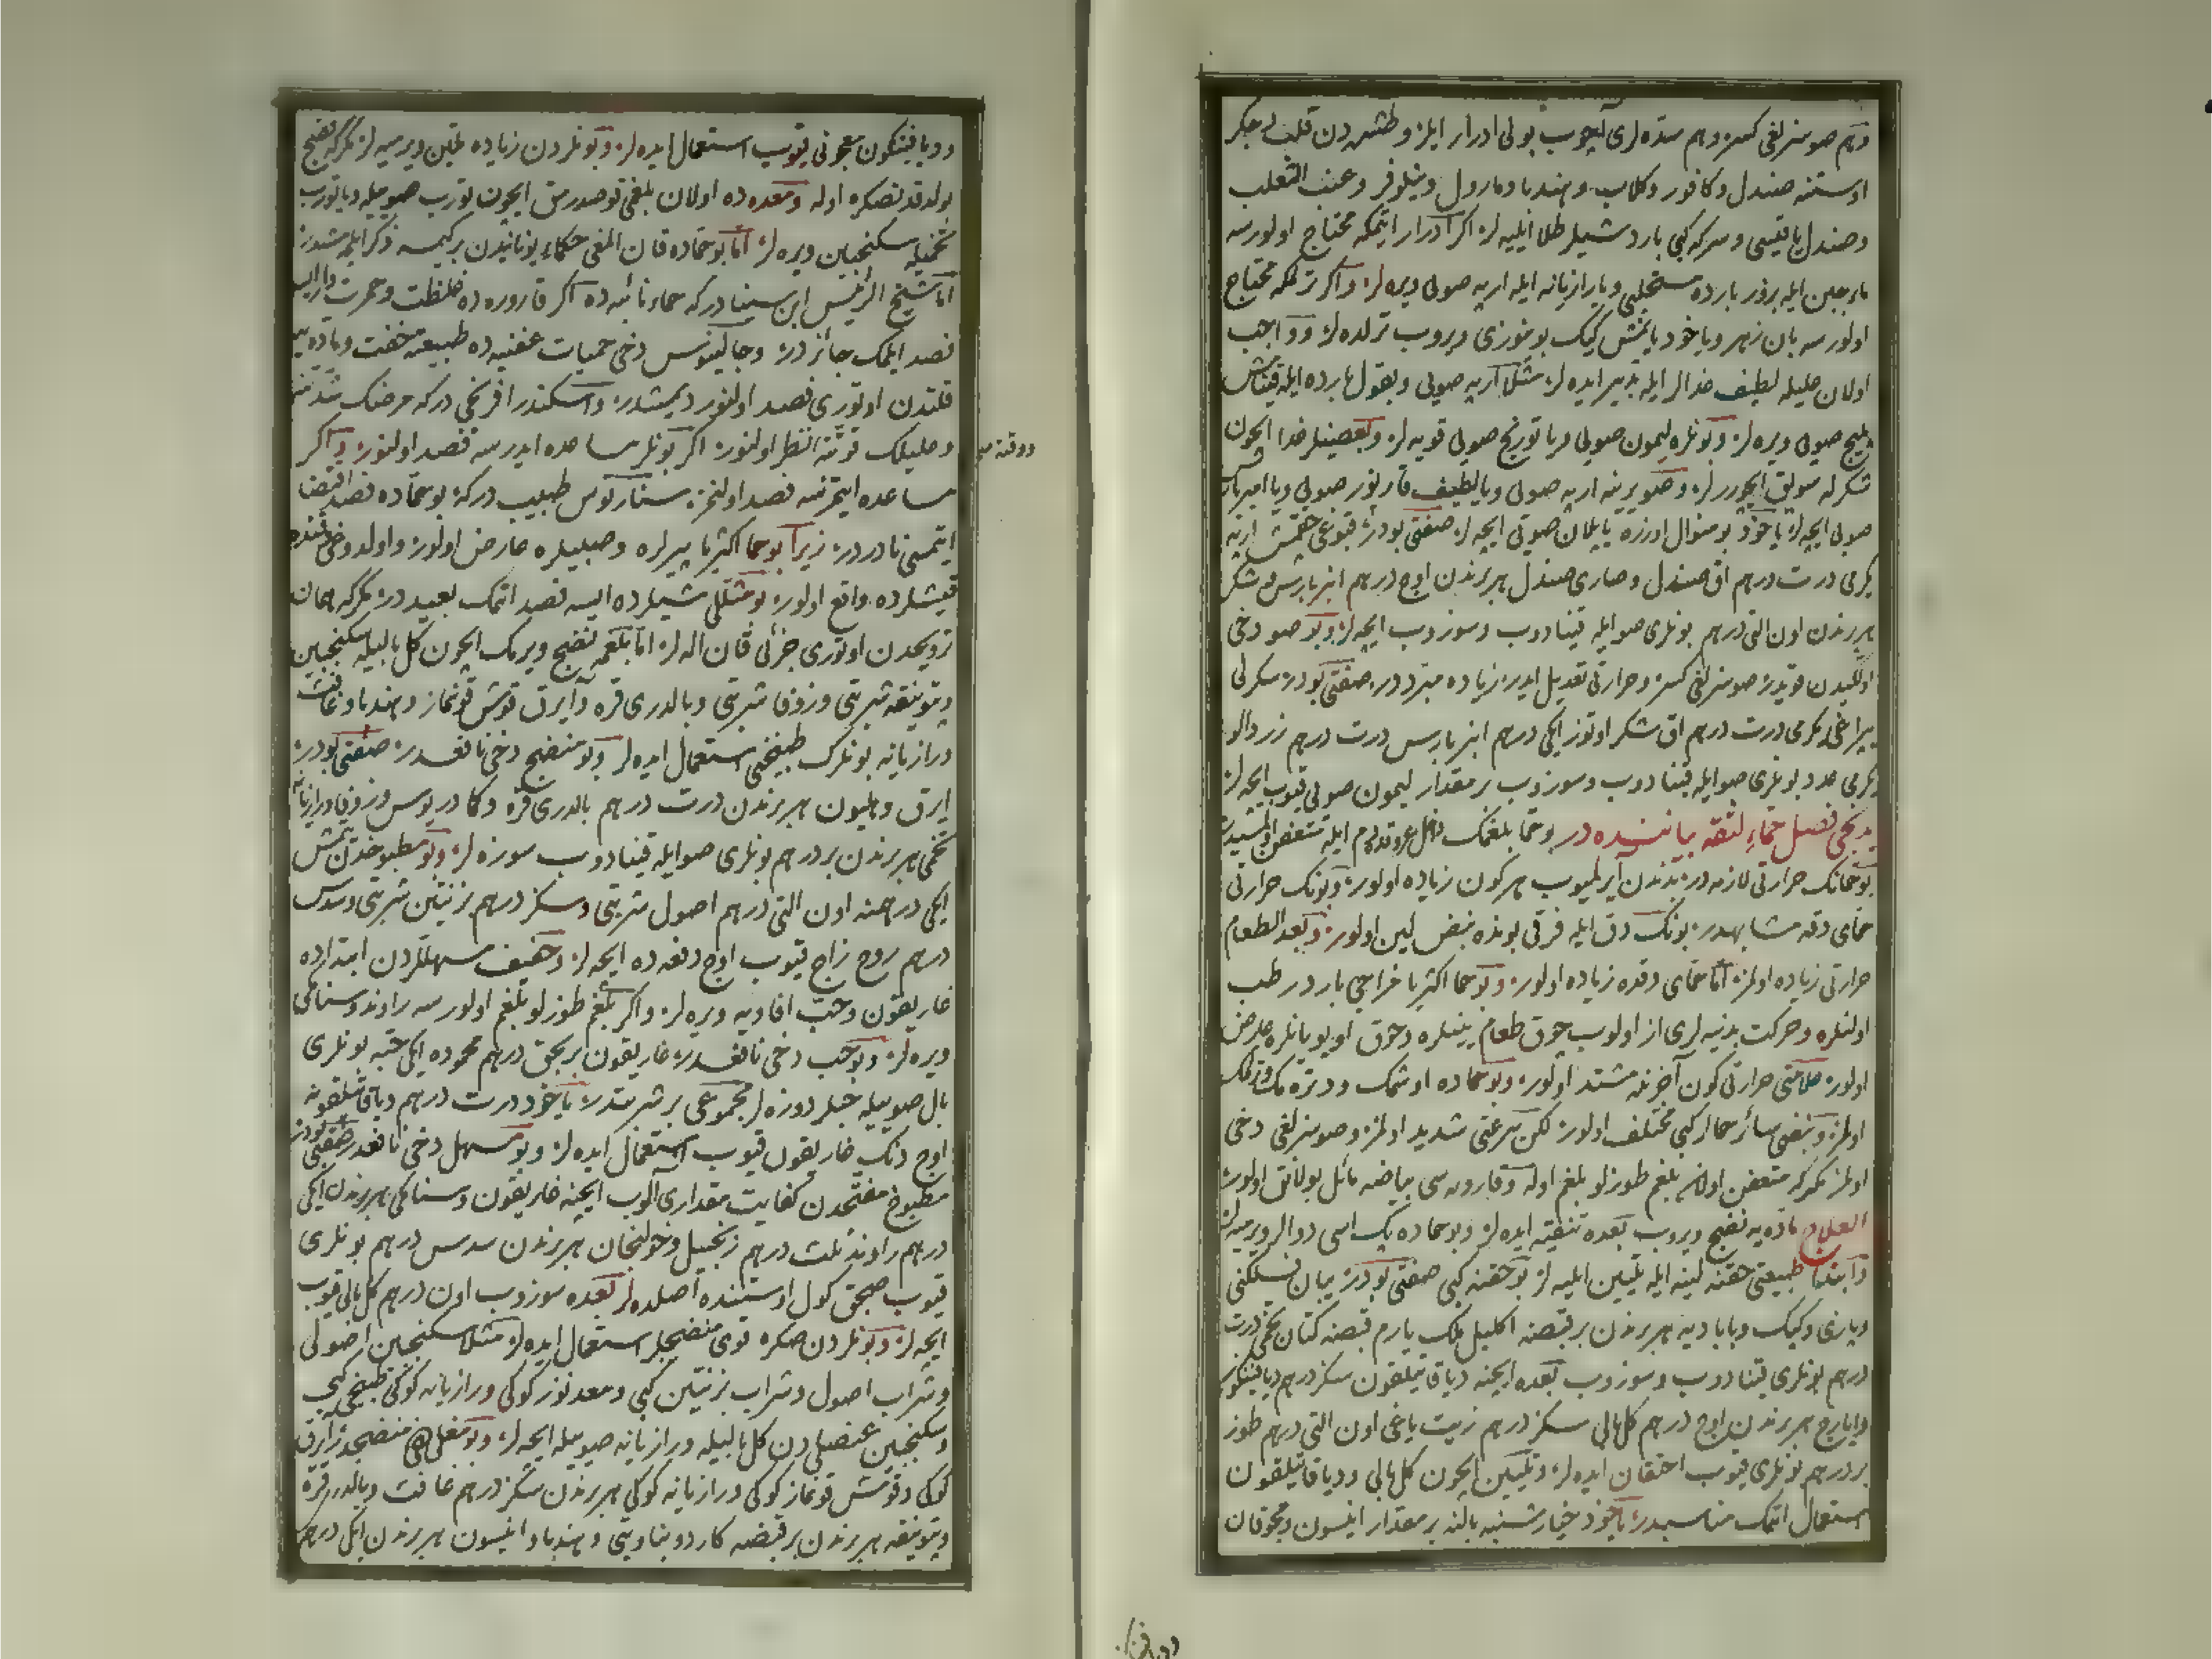 درهم صوسزلغی کسر وهم سده لری آچوب بولی ادرار ایلر وطشره دن قلب وجکر
اوستنه صندل وکافور وکلاب وهندبا ومارول ونیلوفر وعنب الثعلب
وصندل یاقیسی وسرکه کبی بارد شیلر طلا ایلیه لر اکر ادرار ایتمکه محتاج اولورسه
ایله بزور بارده مستحلبی ویا رازیانه ایله ارپه صویی ویره لر واکر ترلمکه محتاج
اولورسه بان زهر ویاخود یانمش کیک بوینوزی ویروب ترلده لر وواجب
اولان علیله لطیف غدالر ایله تدبیر ایده لر مثلا ارپه صویی وبقول بارده ایله قینامش
پلیج صویی ویره لر وبونلره لیمون صویی ویا تورنج صویی قویه لر وبعضیلر غدا ایچون
شکرله سویق ایچوررلر وصو یرینه ارپه صویی ویا لطیف قارپوز صویی ویا
صویی ایچه لر یاخود بو منوال اوزره یاپیلان صویی ایچه لر صفتی بودر قبوغی چقمش ارپه
یکرمی درت درهم اق صندل وصاری صندل هر برندن اوچ درهم انبر باریس وشکر
هر برندن اون التی درهم بونلری صو ایله قینادوب وسوزوب ایچه لر وبو صو دخی
اولکیدن قویدر صوسزلغی کسر وحرارتی تعدیل ایدر زیاده مبرددر صفتی بودر سکرلی
یپراغی یکرمی درت درهم اق شکر اوتوز ایکی درهم انبر باریس درت درهم زردالو
یکرمی عدد بونلری صو ایله قینادوب وسوزوب بر مقدار لیمون صویی قیوب ایچه لر
یدنجی فصل حماء لثقه بیاننده در بو حما بلغمک داخل عروقده دم ایله تعفن
بو حمانک حرارتی لازمه در بدندن آیرلمیوب هر کون زیاده اولور وبونک حرارتی
حمای دقه مشابهدر بونک دق ایله فرقی بونده نبض لین اولور وبعد الطعام
حرارتی زیاده اولمز اما حمای دقده زیاده اولور وبو حما اکثریا مزاجی بارد رطب
اولنلره وحرکت بدنیه لری از اولوب چوق طعام ینلره وچوق اویویانلره عارض
اولور علامتی حرارتی کون آخرنده مشتد اولور وبو حماده اوشمک ودتره مک وترلمک
اولمز ونبضی سائر حمالر کبی مختلف اولور لکن سرعتی شدید اولمز وصوسزلغی دخی
اولمز مکرکه متعفن اولان بلغم طوزلو بلغم اوله وقاروره سی بیاضه مائل بولانق اولور
العلاج ماده یه نضج ویروب بعده تنقیه ایده لر وبو حماده پک اسی دوالر ویرمیه لر
وابتدا طبیعتی حقنه لینه ایله تلیین ایلیه لر بو حقنه کبی صفتی بودر یبان فسلکنی
وپازی وکبک وبابادیه هر برندن بر قبضه اکلیل ملک یارم قبضه کتان تخمی درت
درهم بونلری قینادوب وسوزوب بعده ایچنه دیاقاتیلقون سکز درهم دیافینکون
وایارج هر برندن اوچ درهم کل بالی سکز درهم زیت یاغی اون التی درهم طوز
بر درهم بونلری قیوب احتقان ایده لر وتلیین ایچون کل بالی ودیاقاتیلقون
استعمال اتمک مناسبدر یاخود خیارشنبه بالنه بر مقدار انیسون ومحوقان
ودیافینکون معجونی قیوب استعمال ایده لر وبونلردن زیاده تلیین ویرمیه لر مکرکه نضج
بولدقدنصکره اوله ومعده ده اولان بلغمی قوصدرمق ایچون تورب صوییله ویا تورب
تخمیله سکنجبین ویره لر اما بو حماده قان المغی حکماء یونانیدن بر کیمسه ذکر ایلمه مشدر
اما شیخ الرئیس ابن سینا درکه حماء نائبه ده اکر قاروره ده غلظت وحمرت وار ایسه
فصد ایلمک جائزدر وجالینوس دخی حمیات عفنیه ده طبیعته خفت وماده یه
قلتدن اوتوری فصد اولنور دیمشدر واسکندر افرنجی درکه مرضک شدتنه
وعلیلک قوتنه نظر اولنور اکر بونلر مساعده ایدرسه فصد اولنور واکر
مساعده ایتمزسه فصد اولنمز سنارتوس طبیب درکه بو حماده فصد اقتضا
ایتمسی نادردر زیرا بو حما اکثریا پیرلره وصبیلره عارض اولور واولدوغی
قیشلرده واقع اولور بو مثللی شیلرده ایسه فصد اتمک بعیددر مکرکه همان
ترویحدن اوتوری جزئی قان اله لر اما بلغمه نضج ویرمک ایچون کل بالیله سکنجبین
وبتونیقه شربتی وزوفا شربتی وبالدری قره وایرق قوش قونماز وهندبا وغافث
ورازیانه بونلرک طبیخنی استعمال ایده لر وبو منضج دخی نافعدر صفتی بودر
ایرق وهلیون هر برندن درت درهم بالدری قره وکمادریوس وزوفا ورازیانه
تخمی هر برندن بر درهم بونلری صو ایله قینادوب سوزه لر وبو مطبوخدن یتمش
ایکی درهمنه اون التی درهم اصول شربتی وسکز درهم بزنتین شربتی وسدس
درهم روح زاج قیوب اوچ دفعه ده ایچه لر وخفیف مسهللردن ابتداده
غاریقون وحب افاویه ویره لر واکر بلغم طوزلو بلغم اولورسه راوند وسنامکی
ویره لر وبو حب دخی نافعدر غاریقون بر بچق درهم محموده ایکی حبه بونلری
بال صوییله حبلر دوزه لر مجموعی بر شربتدر یاخود درت درهم دیاقاتیلقونه
اوچ دنک غاریقون قیوب استعمال ایده لر وبو مسهل دخی نافعدر صفتی بودر
مطبوخ مفتحدن کفایت مقداری الوب ایچنه غاریقون وسنامکی هر برندن ایکی
درهم راوند ثلث درهم زنجبیل وخولنجان هر برندن سدس درهم بونلری
قیوب صیجق کول اوستنده اصلده لر بعده سوزوب اون درهم کل بالی قیوب
ایچه لر وبونلردن صکره قوی منضجلر استعمال ایده لر مثلا سکنجبین اصولی
وشراب اصول وشراب بزنتین کبی ومعدنوز کوکی ورازیانه کوکی طبیخی کبی
وسکنجبین عنصلی دن کل بالیله ورازیانه صوییله ایچه لر وبو مغلی منضجدر ایرق
کوکی وقوش قونماز کوکی ورازیانه کوکی هر برندن سکز درهم غافث وبالدری قره
وبتونیقه هر برندن بر قبضه کاردوبناویتی وهندبا وانیسون هر برندن ایکی درهم